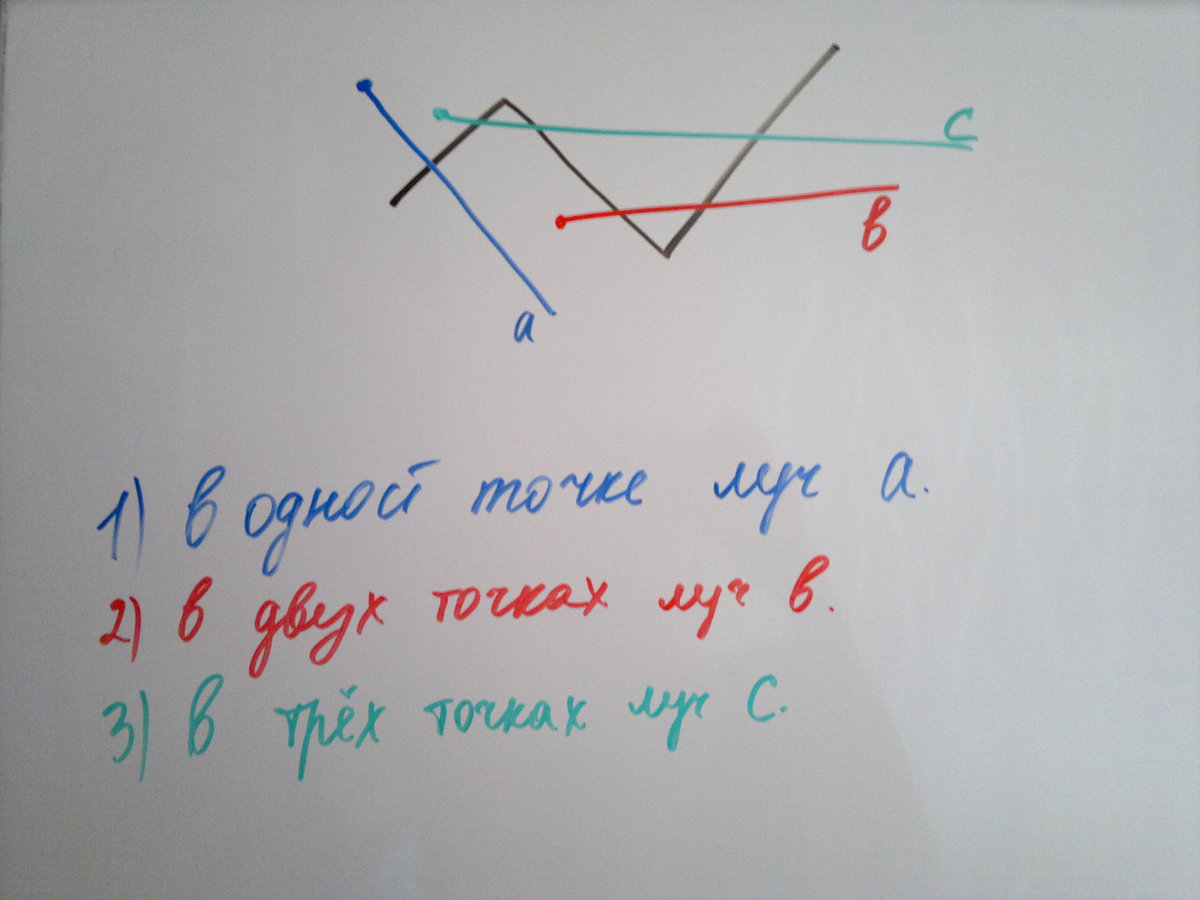 c
в
a
1) в одной точке луч a.
2) в двух точках луч в.
3) в трёх точках луч c.